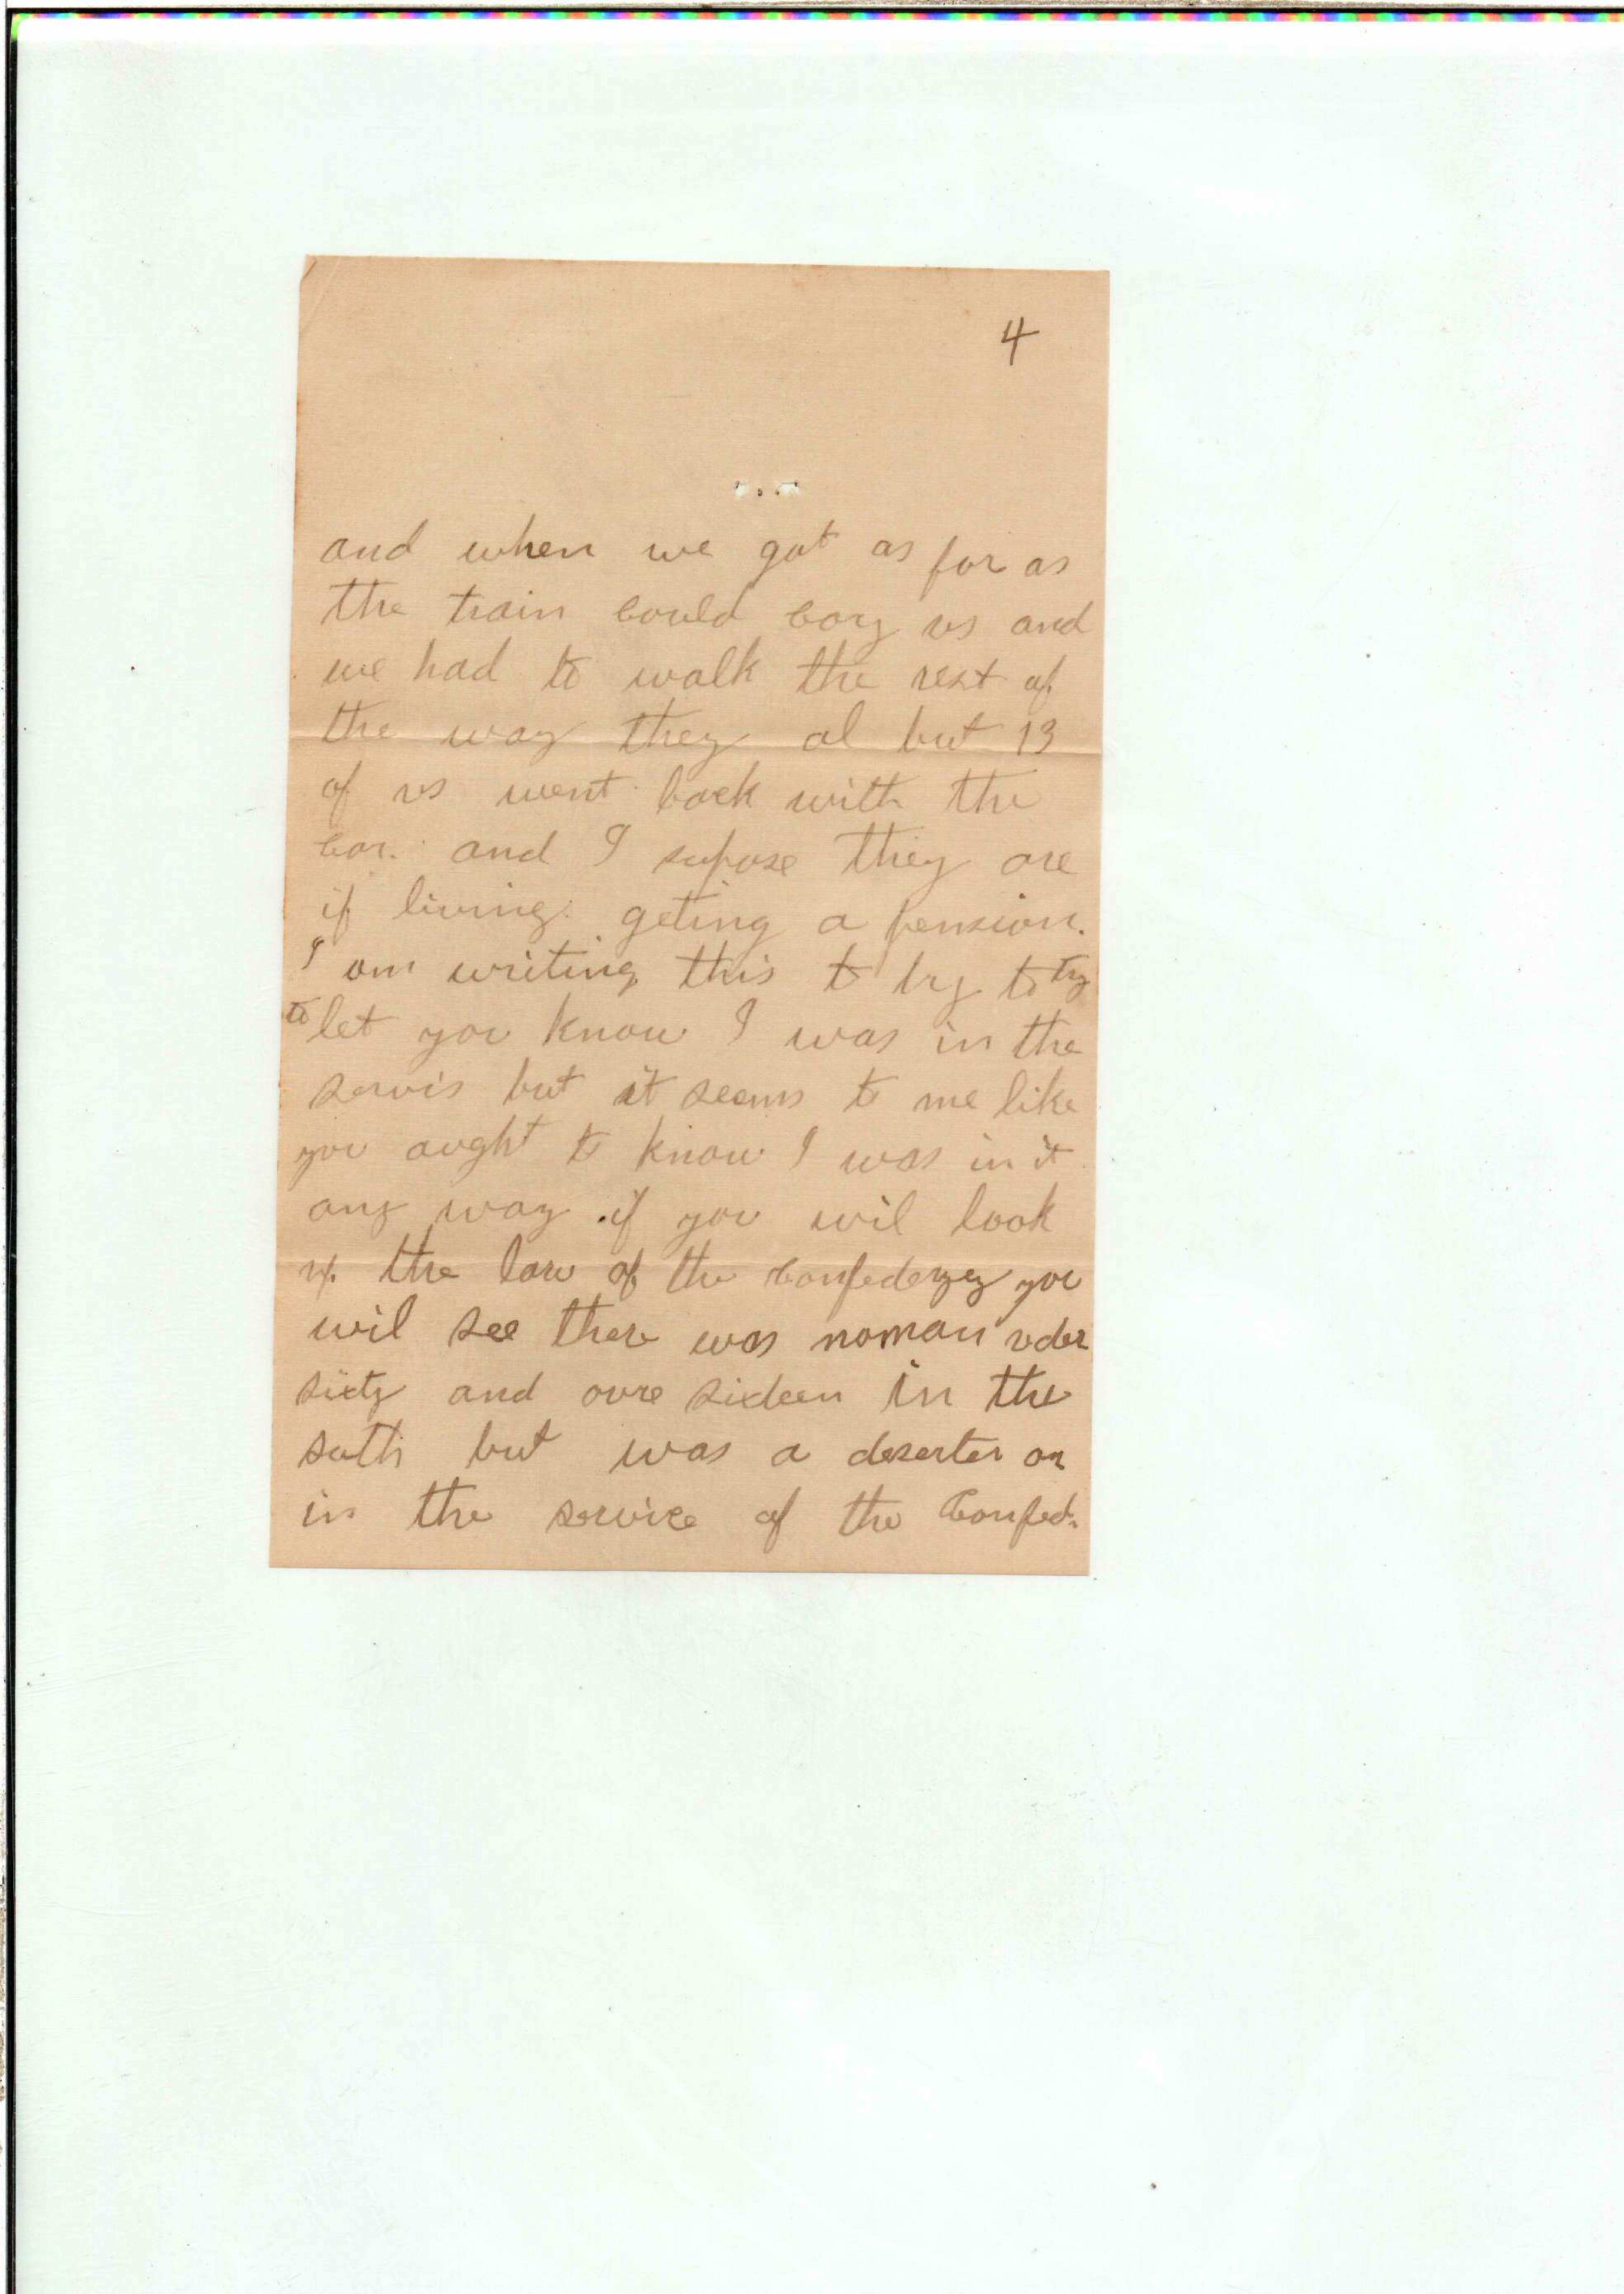 4
and when we got as far as
the train could cary us and
we had to walk the rest of
the way they al but 13
of us went back with the
car. and I supose they are
if living. geting a pension.
I am writing this to try to try
to let you know I was in the
servis but it seems to me like
you aught to know I was in it
any way .if you wil look
up the law of the Confederzey you
wil see there was noman uder
sixty and ovre sixteen in the
south but was a deserter or
in the service of the Confed.